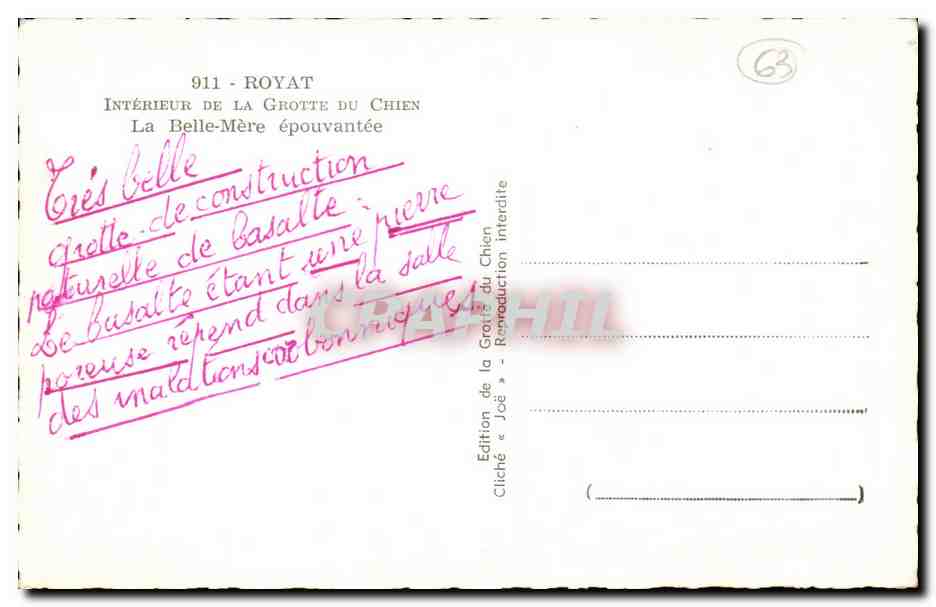 63
911 - ROYAT
INTÉRIEUR DE LA GROTTE DU CHIEN
La Belle-Mère épouvantée
Trés belle
grotte de construction
naturelle de basalte.
Le basalte étant une pierre
poreuse répend dans la salle
des inalations carboniques
Edition de la Grotte du Chien
Cliché « Joë » - Reproduction interdite
CPAPHIL